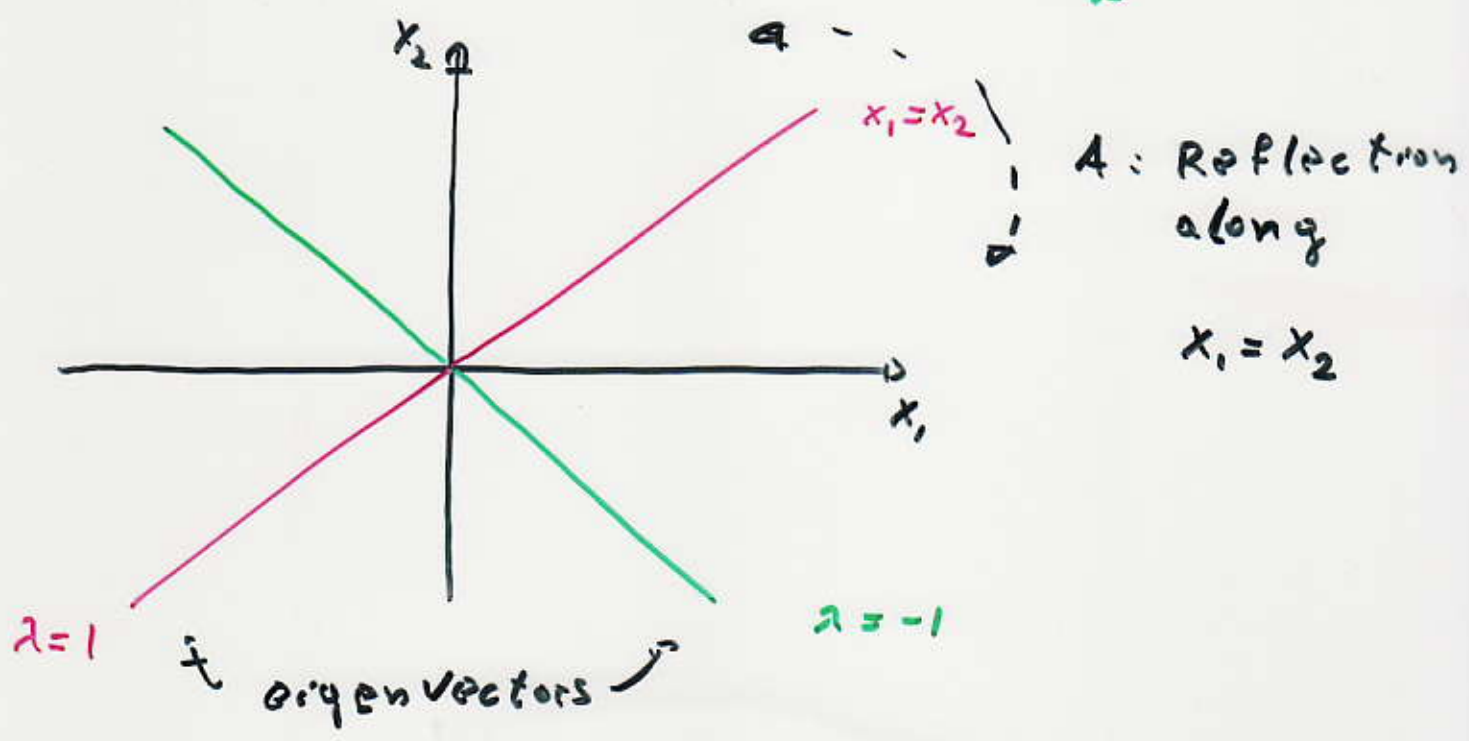 x₂
x₁ = x₂
A : Reflection
along
x₁ = x₂
x₁
λ = 1
λ = -1
eigenvectors